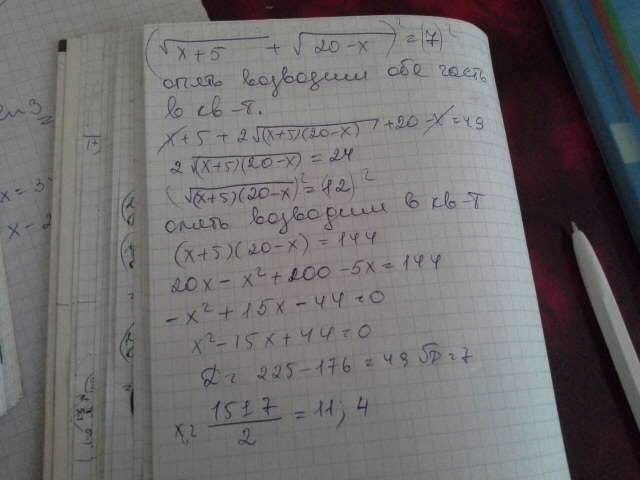 (√x+5 + √20-x)² = (7)²
опять возводим обе часть
в кв-т.
x+5+2√(x+5)(20-x)+20-x=49
2√(x+5)(20-x)=24
(√(x+5)(20-x))²=(12)²
опять возводим в кв-т
(x+5)(20-x)=144
20x-x²+200-5x=144
-x²+15x-44=0
x²-15x+44=0
D=225-176=49 √D=7
x₁,₂ 15±7/2=11; 4
x=3
x-2